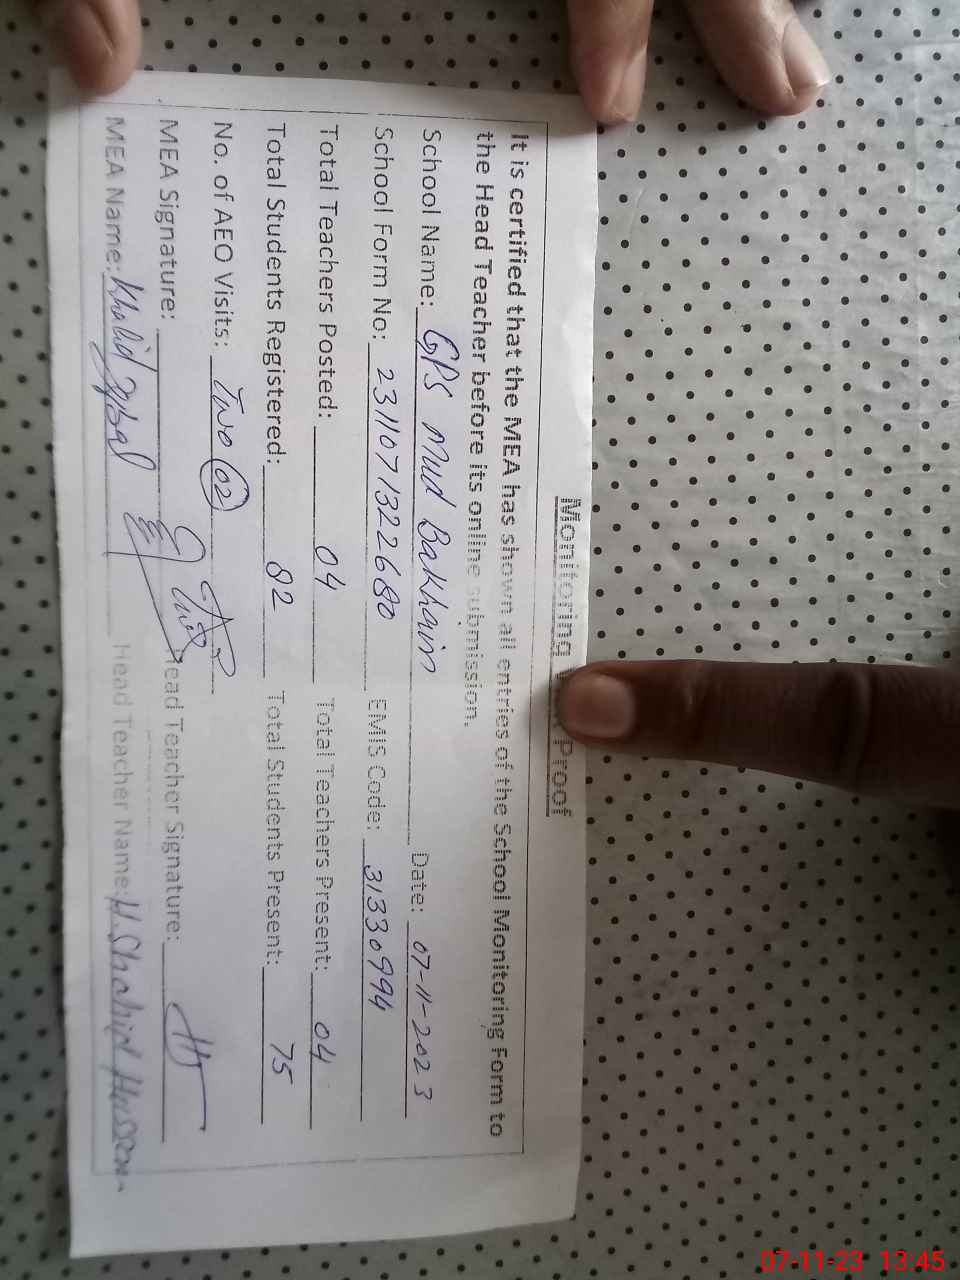 Monitoring Proof
It is certified that the MEA has shown all entries of the School Monitoring Form to
the Head Teacher before its online submission.
School Name: GPS Mud Bakhain Date: 07-11-2023
School Form No: 2311071322680 EMIS Code: 31330994
Total Teachers Posted: 04 Total Teachers Present: 04
Total Students Registered: 82 Total Students Present: 75
No. of AEO Visits: Two 02
MEA Signature: Head Teacher Signature:
MEA Name: Khalid Iqbal Head Teacher Name: H. Shahid Hussain
07-11-23 13:45